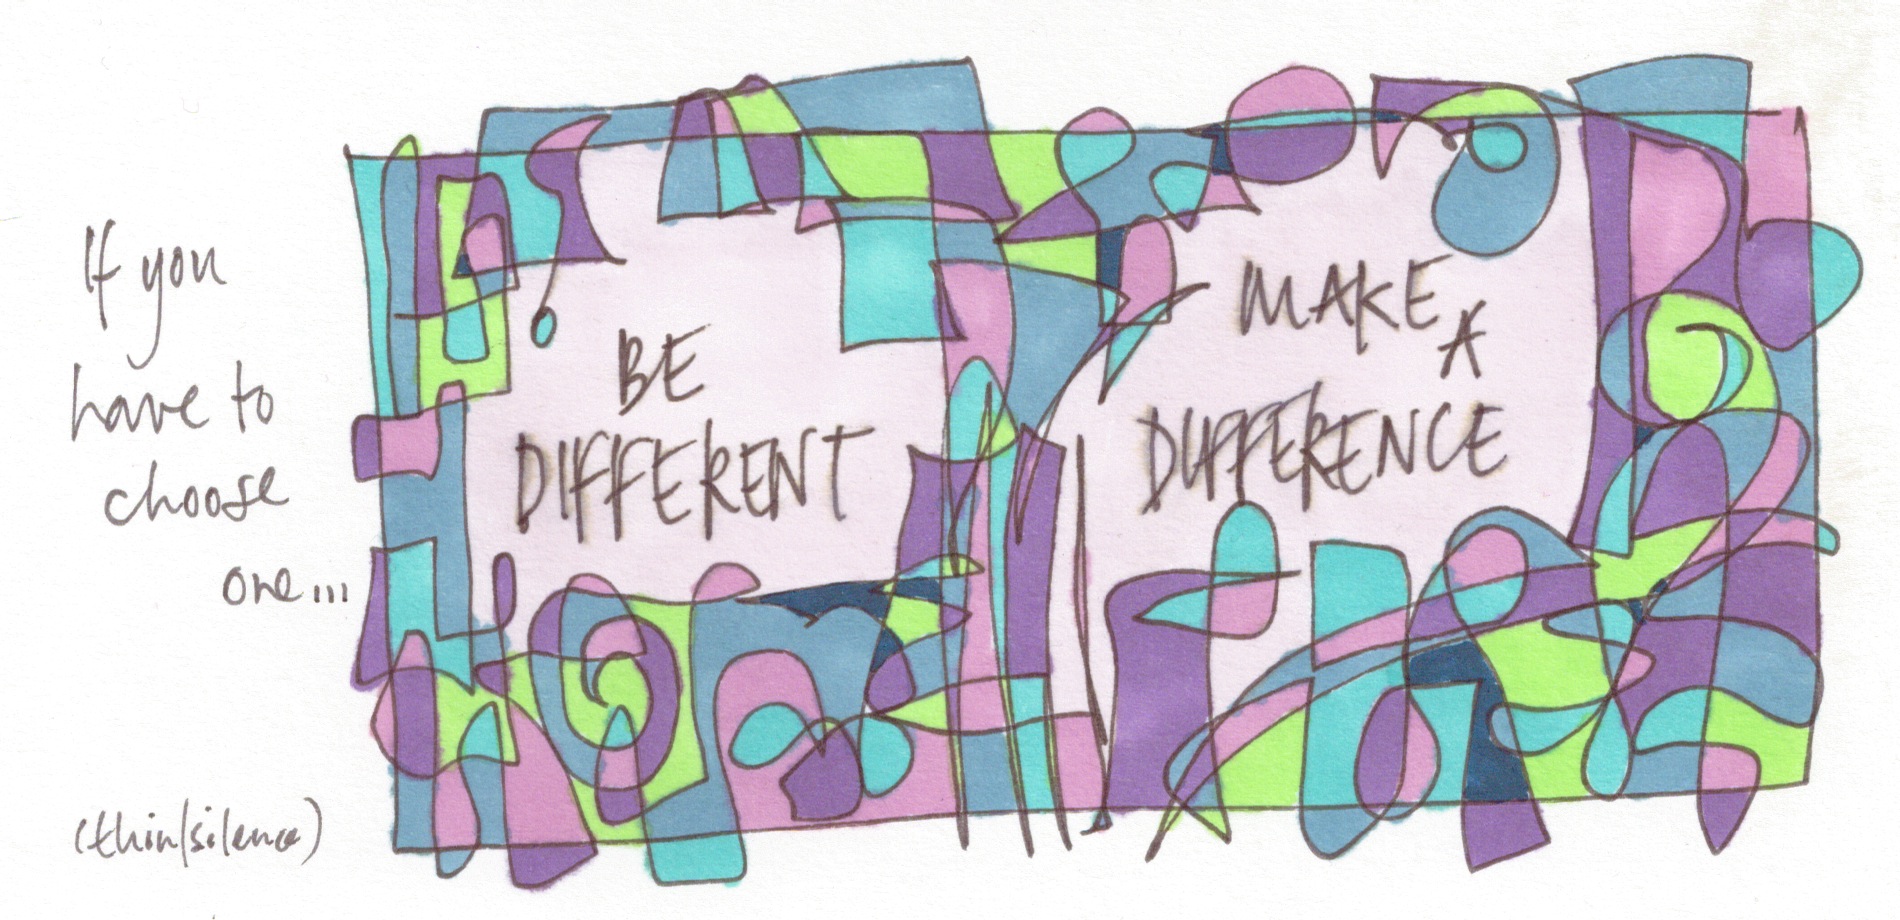 If you
have to
choose
one...
(thin|silence)
BE
DIFFERENT
MAKE
A
DIFFERENCE